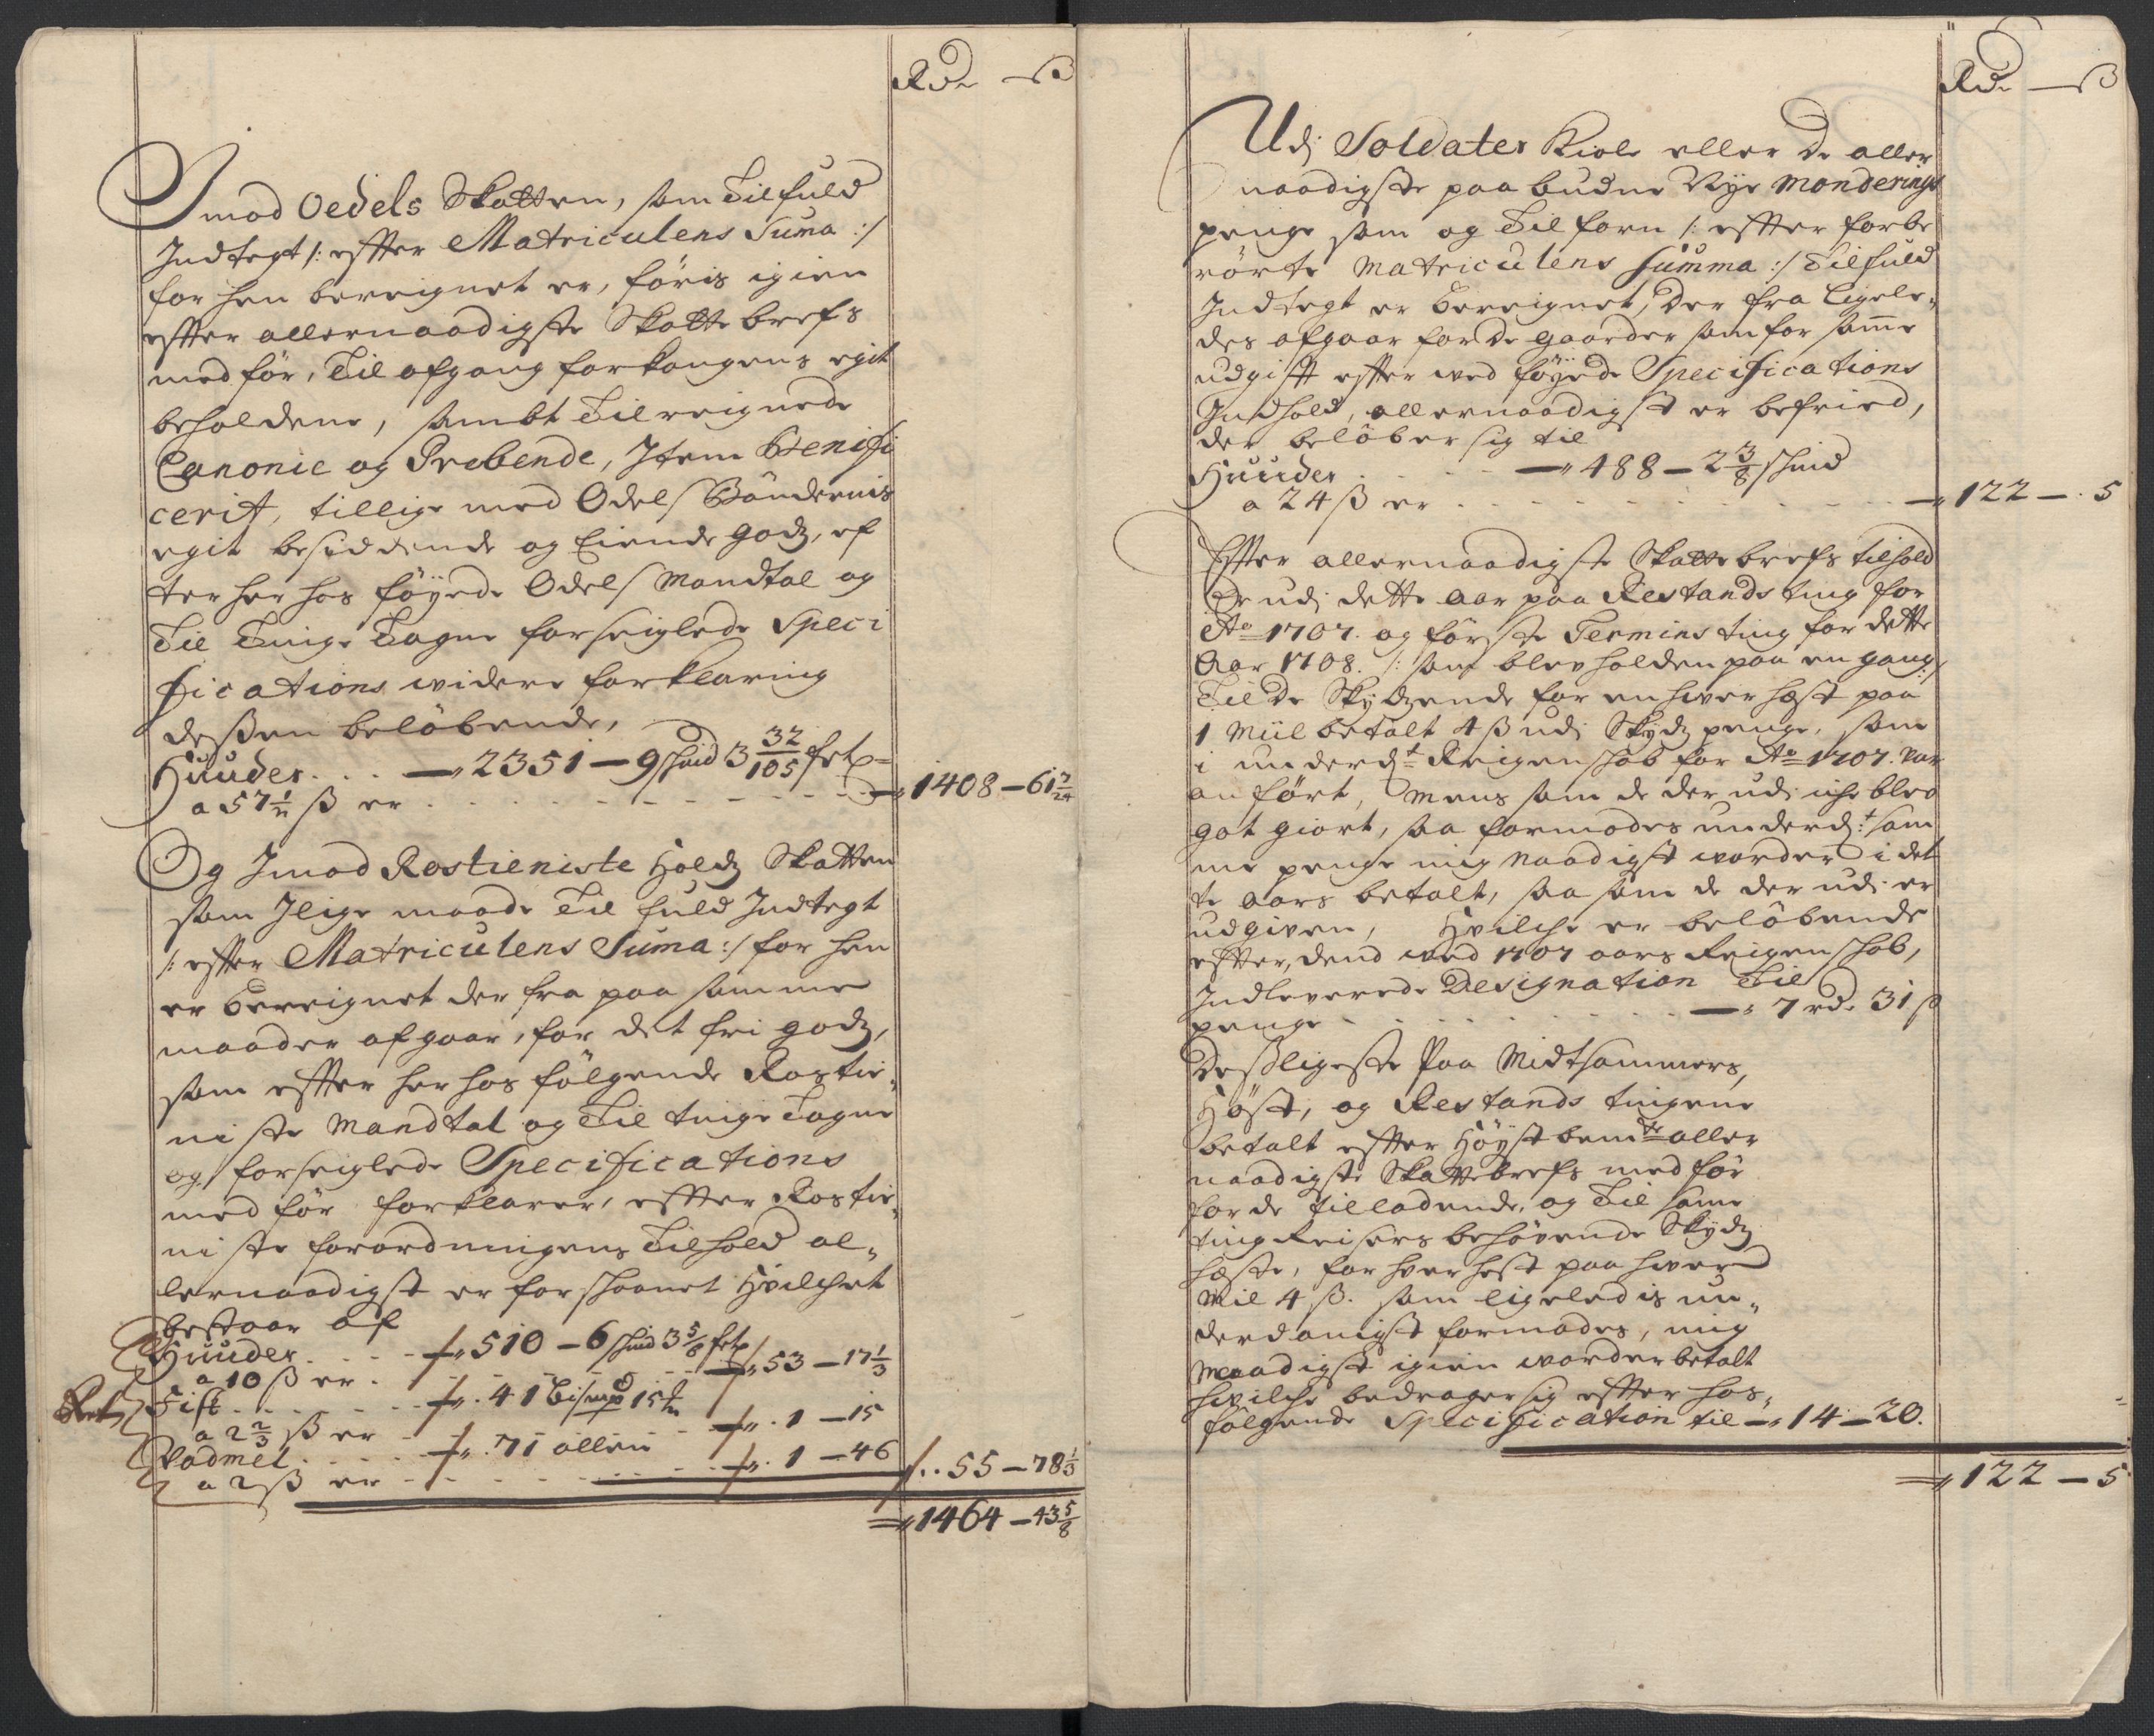 Rdr — ß
Imod Oedels Skatten, som Til fuld
Indtegt /: effter Matriculens Suma :/
for hen bereignet er, föris igien
effter allernaadigste Skatte brefs
medför, Til afgang for kongens egit
beholdene, sambt Til reignede
Canonic og Prebende, Item Benifi
cerit, tillige med Odels Böndernis
egit besiddende og Eiende godz, ef
ter her hos föyede Odels Mandtal og
Til Tinge Tagne forseiglede Speci
fications widere forklaring
deßen belöbende,
Huuder . . . —„ 2351 — 9 skind 3 32/105
a 57½ ß er . . . . . —„ 1408 — 61 7/24
Og Imod Rostieniste Holdz Skatten
som Ilige maade Til fuld Indtegt
/: effter Matriculens Suma :/ for hen
er Bereignet der fra paa samme
maader afgaar, for det fri godz,
som effter her hos fölgende Rostie„
niste Mandtal og Til tinge Tagne
og forseiglede Specifications
med för forklarer, effter Rostie„
niste forordningens Tilhold al„
lernaadigst er forskaanet Hvilchet
bestaar af
Huuder . . . —„ 510 — 6 skind 3 5/8
a 10 ß er . . . —„ 53 — 17⅓
Fisk . . . —„ 41 Bismr 15½
a 2⅔ ß er . . . —„ 1 — 15
Wadmel . . . —„ 71 allen
a 2 ß er . . . —„ 1 — 46 „ 55 — 78⅓
=„ 1464 — 43 5/8
Rdr — ß
Udi Soldater Kiole eller de aller
naadigste paabudne Nye Monderings
penge som og Til forn /: effter forbe
rörte Matriculens Summa :/ Til fuld
Indtegt er Bereignet, Der fra Ligele„
des afgaar for de gaarder som for samme
udgifft effter wed föyede Specifications
Indhold, allernaadigst er befried,
der belöber sig til
Huuder . . . —„ 488 — 2 3/8 skind
a 24 ß er . . . . . —„ 122 — . 5
Effter allernaadigste Skatte brefs tilhold
Er udi dette aar paa Restands ting for
Ao 1707. og förste Termins ting for dette
Aar 1708. /: som blev holden paa en gang :/
Til De Skydzende for en hwer hest paa
1 Miil betalt 4 ß udi Skydz penge, som
i underdt Reigenskab for Ao 1707. var
anfört, Mens som de der udi iche blev
got giort, saa formodes underd:t sam
me penge mig naadigst worder i det
te aars betalt, saa som de der udi er
udgiven, Hvilche er belöbende
effter, dend wed 1707 aars Reigenskab,
Indleverede Designation Til
penge . . . . . —„ 7 rdr 31 ß
Desligeste Paa Midtsommers,
Höst, og Restands tingene
betalt effter Höystbemte aller
naadigste Skattebrefs med för
for de tilladende, og Til same
ting Reisers behövende Skydz
heste, for hver hest paa hwer
Mil 4 ß. som ligeledis un„
derdanigst formodes, mig
Naadigst igien worder betalt
hvilche bedrager sig effter hos„
fölgende Specification til —„ 14 — 20.
=„ 122 — 5